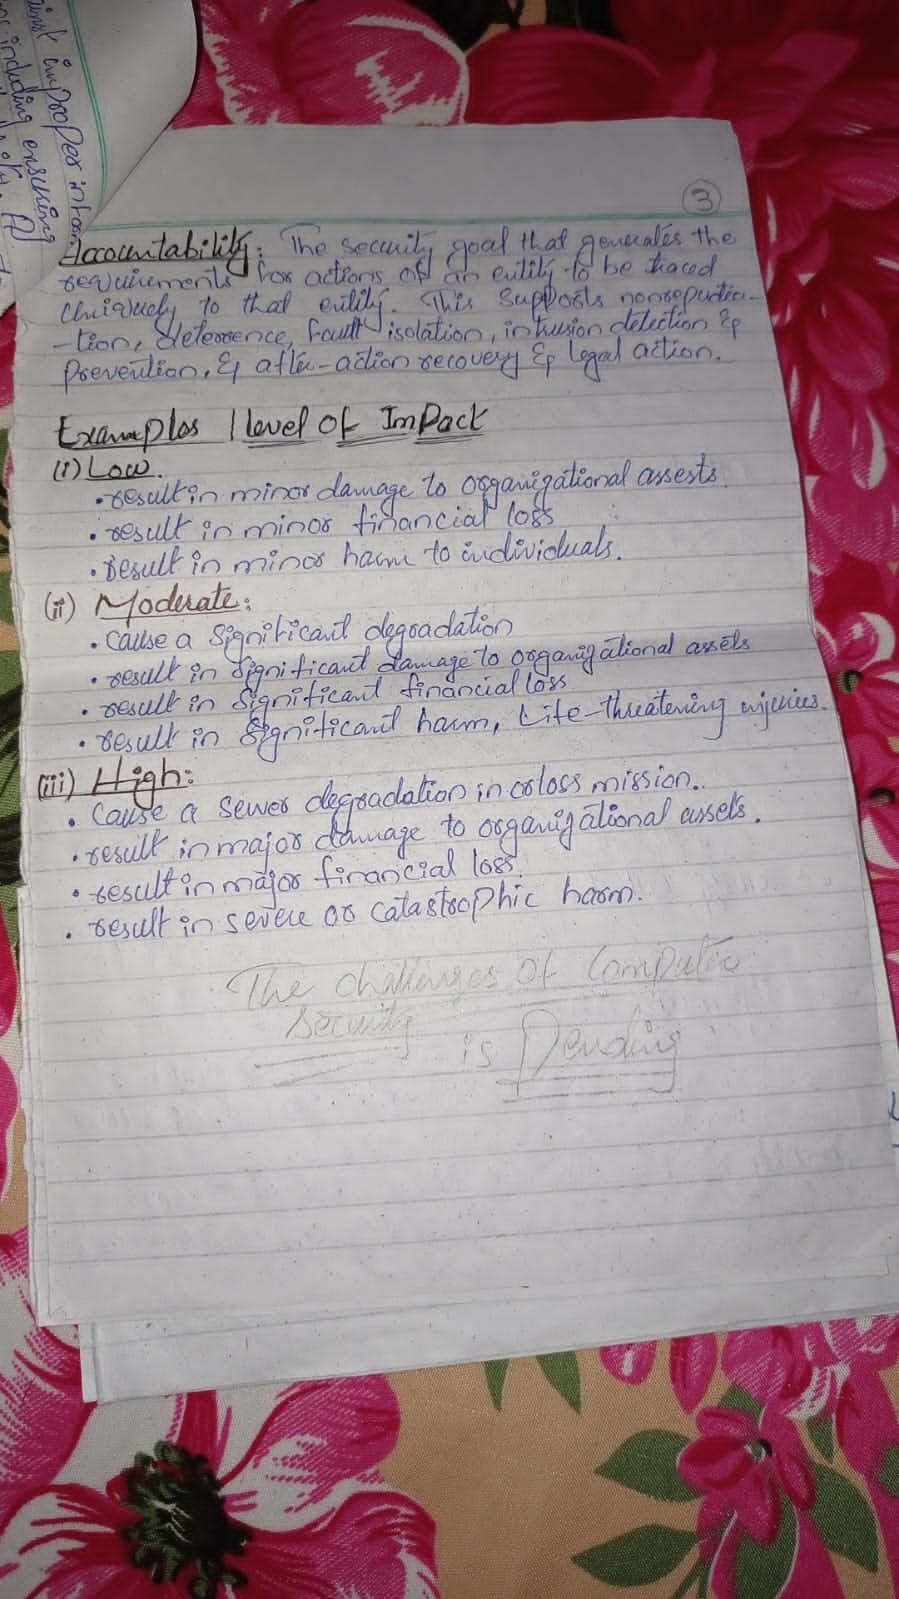 ainst improper infor
ns including ensuring
3
Accountability: The security goal that generates the
requirements for actions of an entity to be traced
uniquely to that entity. This supports nonrepudia-
-tion, deterrence, fault isolation, intrusion detection &
Prevention, & after-action recovery & legal action.
Examples | level of Impact
(i) Low.
• result in minor damage to organizational assests.
• result in minor financial loss
• result in minor harm to individuals.
(ii) Moderate:
• Cause a Significant degradation
• result in significant damage to organizational assets
• result in significant financial loss
• result in significant harm, Life-threatening injuries.
(iii) High:
• Cause a sewer degradation in or loss mission..
• result in major damage to organizational assets.
• result in major financial loss.
• result in severe or catastrophic harm.
The challenges of Computer
Security
is Pending